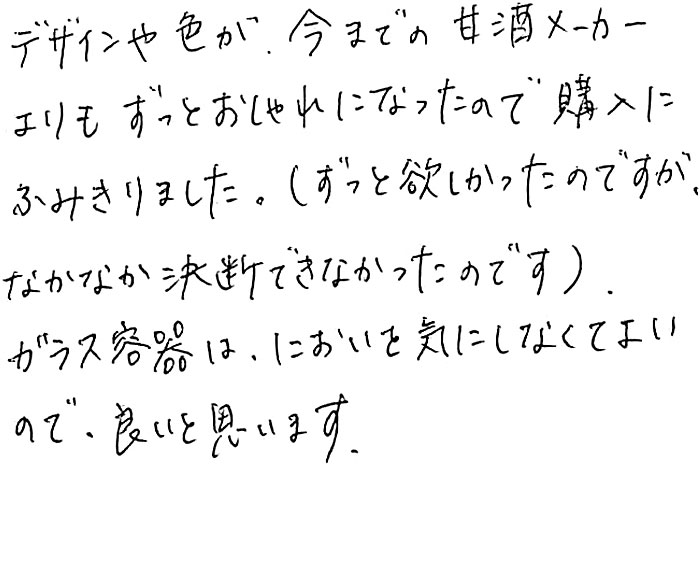 デザインや色が、今までの甘酒メーカー
よりもずっとおしゃれになったので購入に
ふみきりました。(ずっと欲しかったのですが、
なかなか決断できなかったのです)．
ガラス容器は、においを気にしなくてよい
ので、良いと思います．